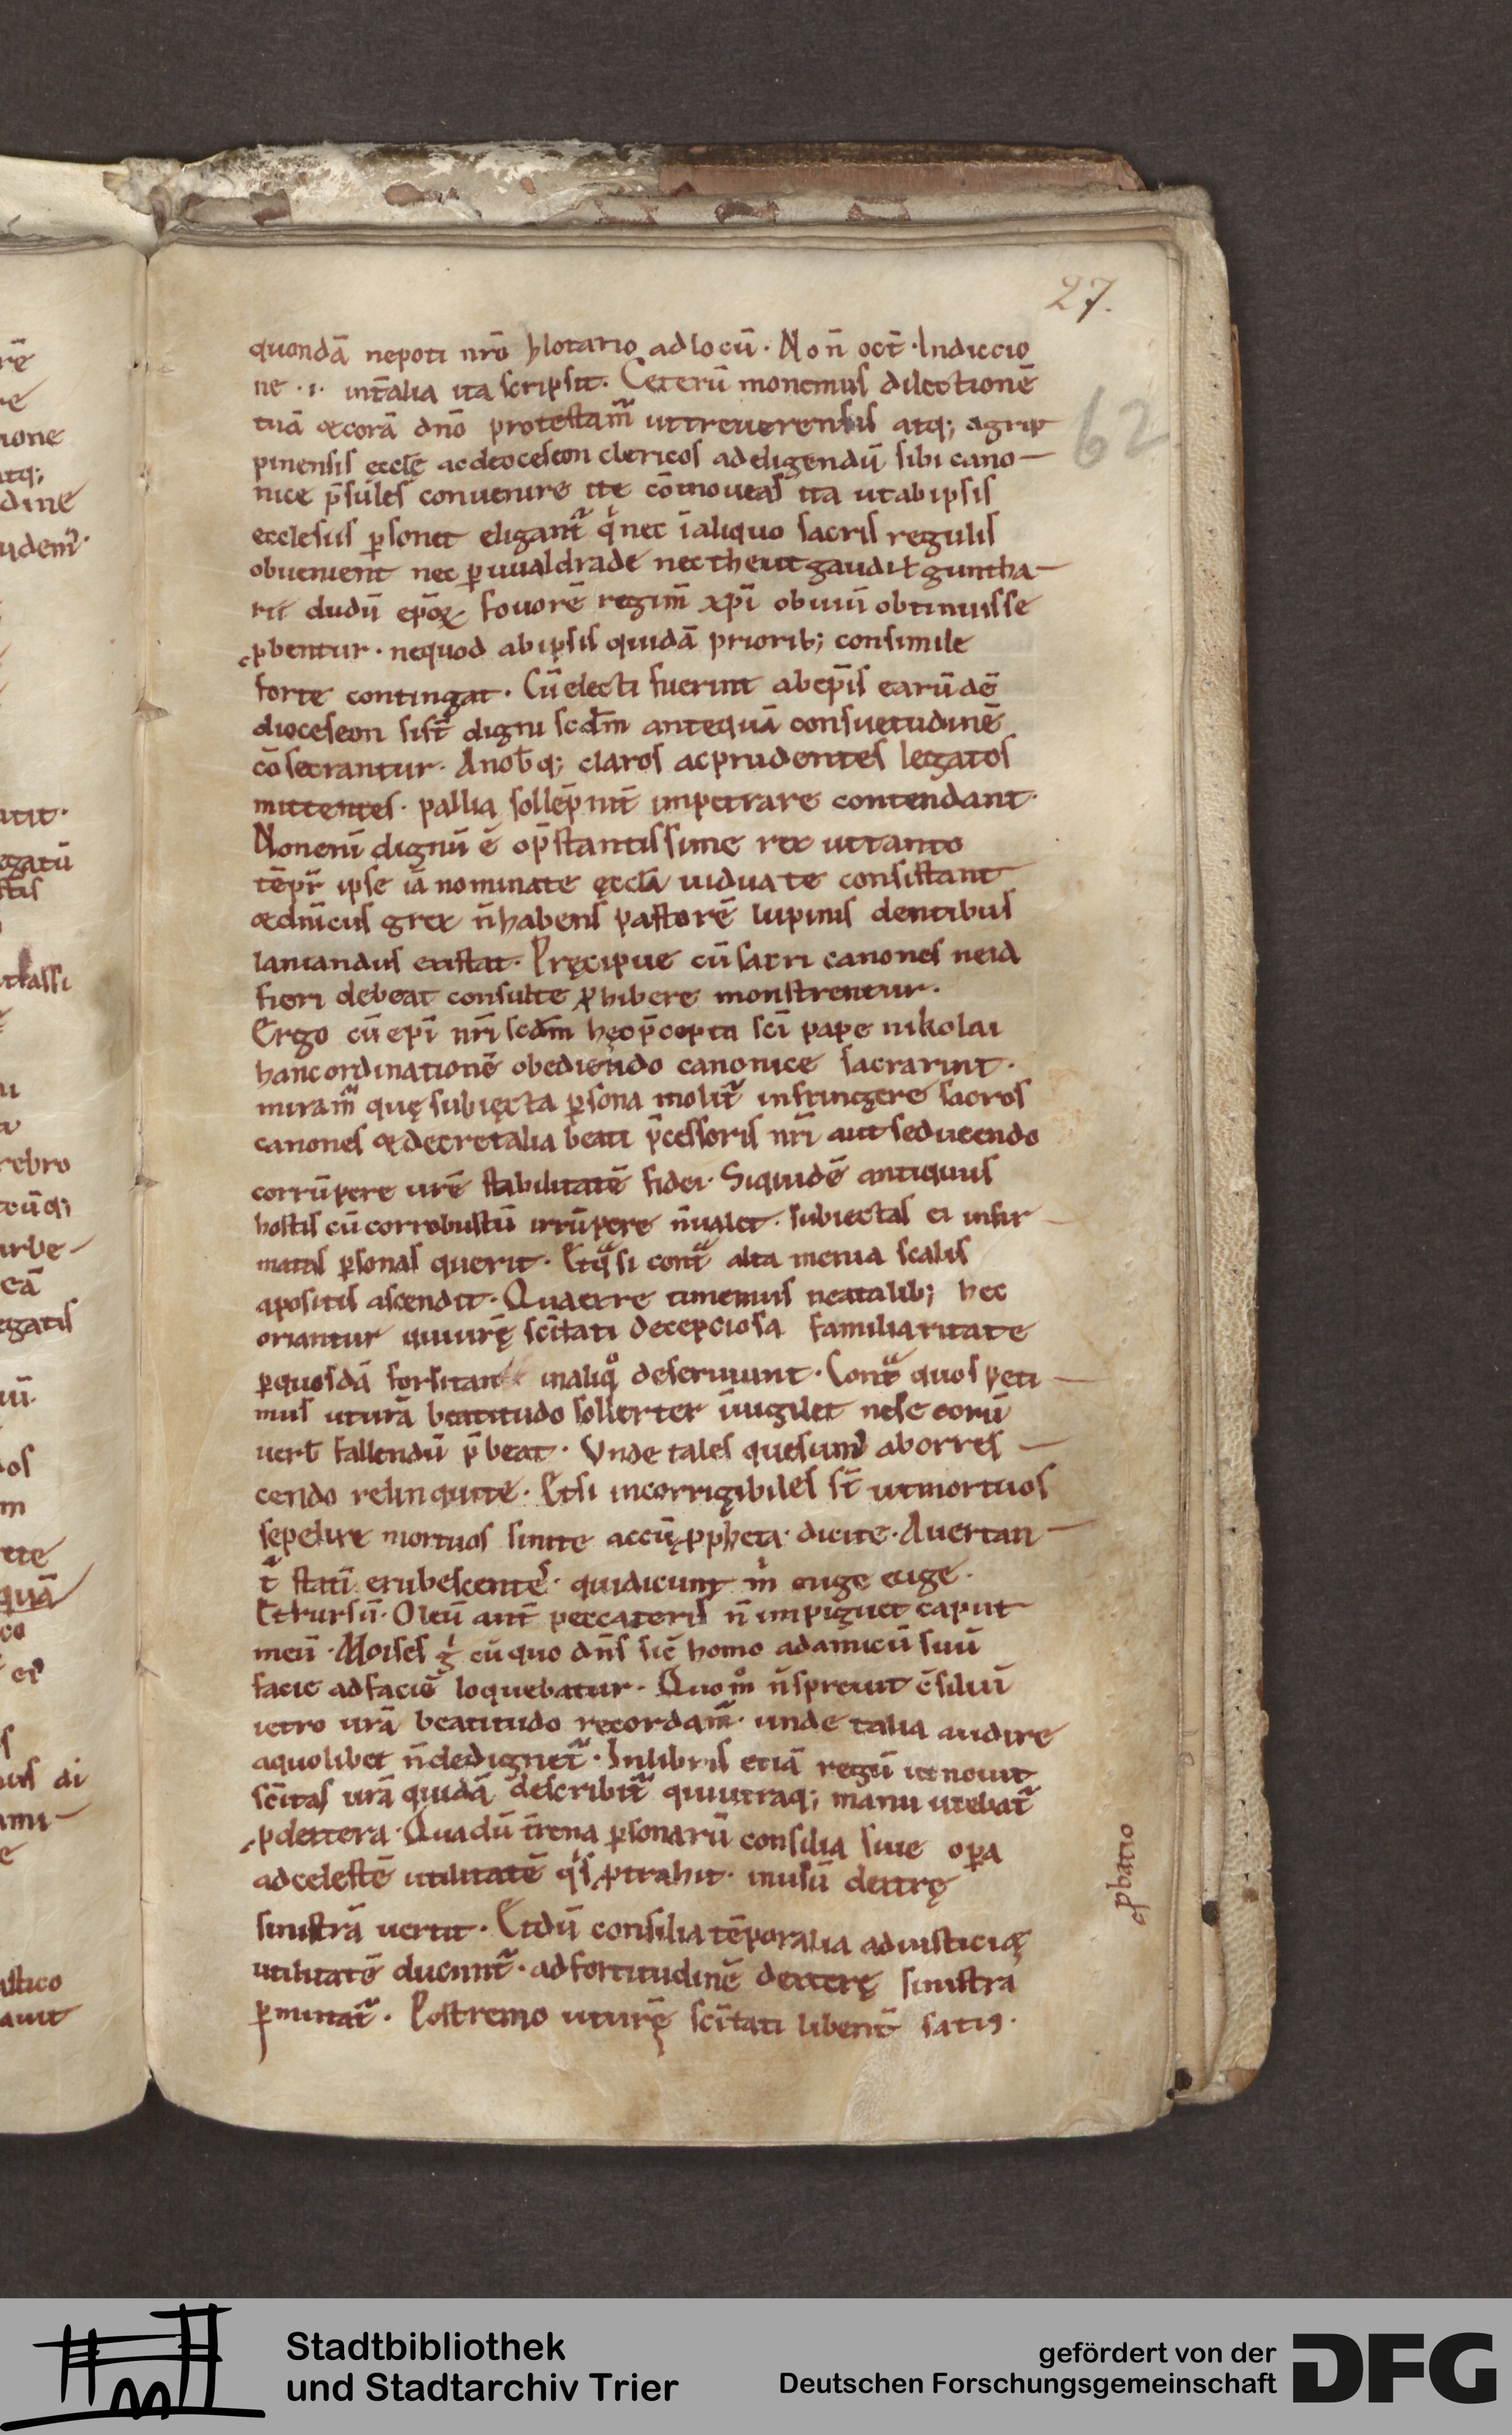 27.
62
quondā nepoti nr̄o hlotario ad locū. Non̄ oct̄. Indiccio
ne .i. int̄ alia ita scripsit. Ceterū monemus dilectionē
tuā & corā dn̄o protestam̄ ut treuerensis atq; agrip
pinensis eccłę ac deoceseon clericos ad eligendū sibi cano
nice p̄sules conuenire te cōmoueas ita ut ab ipsis
ecclesiis ꝑsone eligant̄ q̇ nec ī aliquo sacris regulis
obuenient nec ꝑ uualdrade nec theutgaudi ł guntha
rii dudū ep̄oꝝ fouorē regim̄ xp̄i obuiū obtinuisse
ꝓbentur. ne quod ab ipsis quidā priorib; consimile
forte contingat. Cū electi fuerint ab ep̄is earūdē
dioceseon si st̄ digni scdm̄ antequā consuetudinē
cōsecrantur. A nob̄q; claros ac prudentes legatos
mittentes. pallia sollēpnit̄ impetrare contendant.
Non enī dignū ē o p̄stantissime rex ut tanto
tēpr̄ ipse iā nominate ęccłę uiduate consistant
& dn̄icus grex n̄ habens pastorē lupinis dentibus
laniandus existat. Pręcipue cū sacri canones ne id
fieri debeat consulte ꝓhibere monstrentur.
Ergo cū epī nr̄i scdm̄ hęc p̄cepta sc̄i pape nikolai
hanc ordinationē obediendo canonice sacrarint.
miram̄ quę subięcta ꝑsona molit̄ infringere sacros
canones & decretalia beati p̄cessoris nr̄i aut seducendo
corrūpere ur̄ē stabilitatē fidei. Siquidē antiquus
hostis cū corrobustū irrūpere n̄ualet. subiectas ei infir
matas ꝑsonas querit. Et q̄si cont̄ alta menia scalis
apositis ascendit. Quaerre timemus ne a talib; hec
oriantur qui ur̄ę sc̄itati decepciosa familiaritate
ꝑ quosdā forsitan in aliq̊ deseruiunt. Cont̄ quos peti
mus ut ur̄ā beatitudo sollerter īuigilet ne se eorū
uerb̄ fallendū p̄beat. Unde tales quesum̉ aborres
cendo relinquite. Et si incorrigibiles st̄ ut mortuos
sepelire mortuos sinite ac cū ꝓpheta dicite. Auertan
t̄ stati erubescentes̉ qui dicunt ṁ euge euge.
Et rursū. Oleū aut̄ peccatoris n̄ impiguet caput
meū. Moises ġ cū quo dn̄s sic̄ homo ad amicū suū
facie ad faciē loquebatur. Quom̊ n̄ spreuit c̄siliū
ietro ur̄ā beatitudo recordam̄. unde talia audire
a quolibet n̄ dedignet̄. In libris etiā regū ut nouit
sc̄itas ur̄ā quidā describit̄ qui utraq; manu utebat̄
ꝓ dextera. Qua dū t̄rena ꝑsonarū consilia siue oꝑa
ad celestē utilitatē q̇s ꝓtrahit. in usū dextrę
sinistrā uertit. Et dū consilia tēporalia ad iusticię
utilitatē ducunt̄. ad fortitudinē dexterę sinistra
ꝑmutat̄. Postremo ut ur̄ę sc̄itati libent̄ satis.
ꝓbatio
Stadtbibliothek
und Stadtarchiv Trier
gefördert von der
Deutschen Forschungsgemeinschaft
DFG